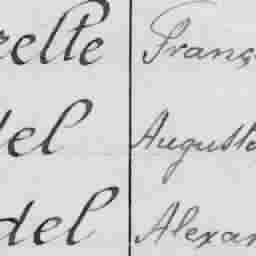 relle Franç
del Auguste
del Alexan